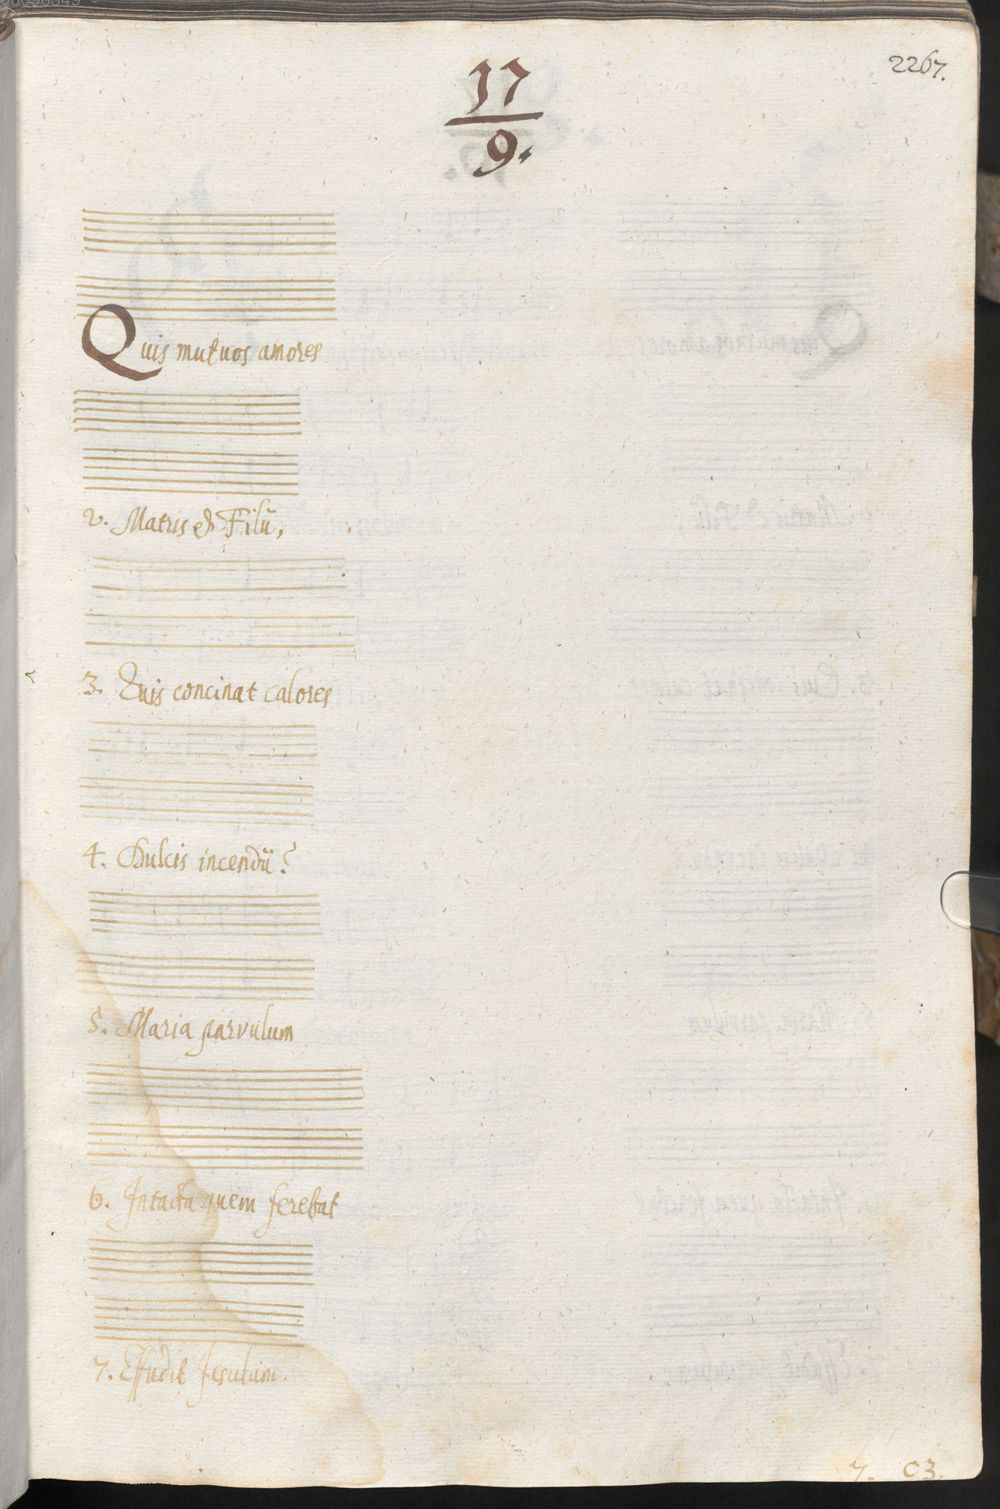 2267.
17
9.
Quis mutuos amores
2. Matris & Filii,
3. Quis concinat calores
4. Dulcis incendii?
5. Maria parvulum
6. Intacta quem ferebat
7. Effudit Jesulum.
7. C3.